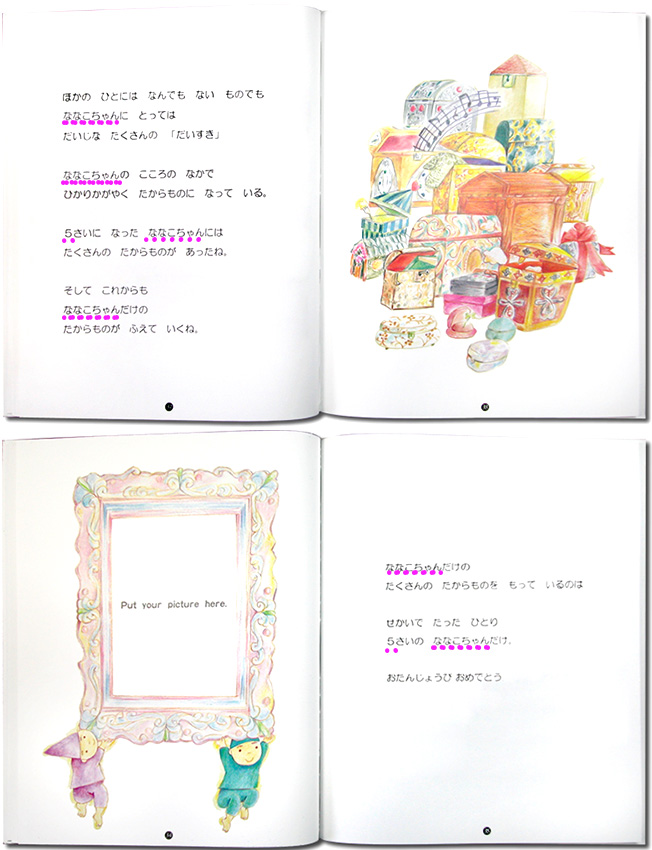 ほかの　ひとには　なんても　ない　ものでも
ななこちゃんに　とっては
だいじな　たくさんの　「だいすき」
ななこちゃんの　こころの　なかで
ひかりかがやく　たからものに　なって　いる。
5さいに　なった　ななこちゃんには
たくさんの　たからものが　あったね。
そして　これからも
ななこちゃんだけの
たからものが　ふえて　いくね。
Put your picture here.
34
ななこちゃんだけの
たくさんの　たからものを　もって　いるのは
せかいで　たった　ひとり
5さいの　ななこちゃんだけ.
おたんじょうび おめでとう